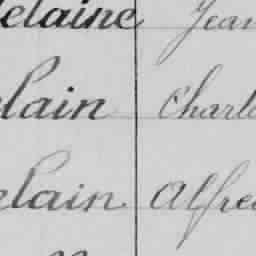 elaine Jean
elain Charl
elain Alfre